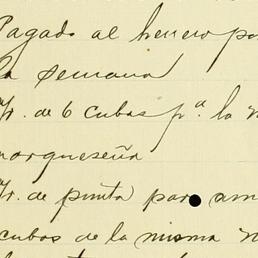 Pagado al herrero por
la semana
Gr. de 6 cubas pª. la
norqueseña
Gr. de punta para am
cubos de la misma